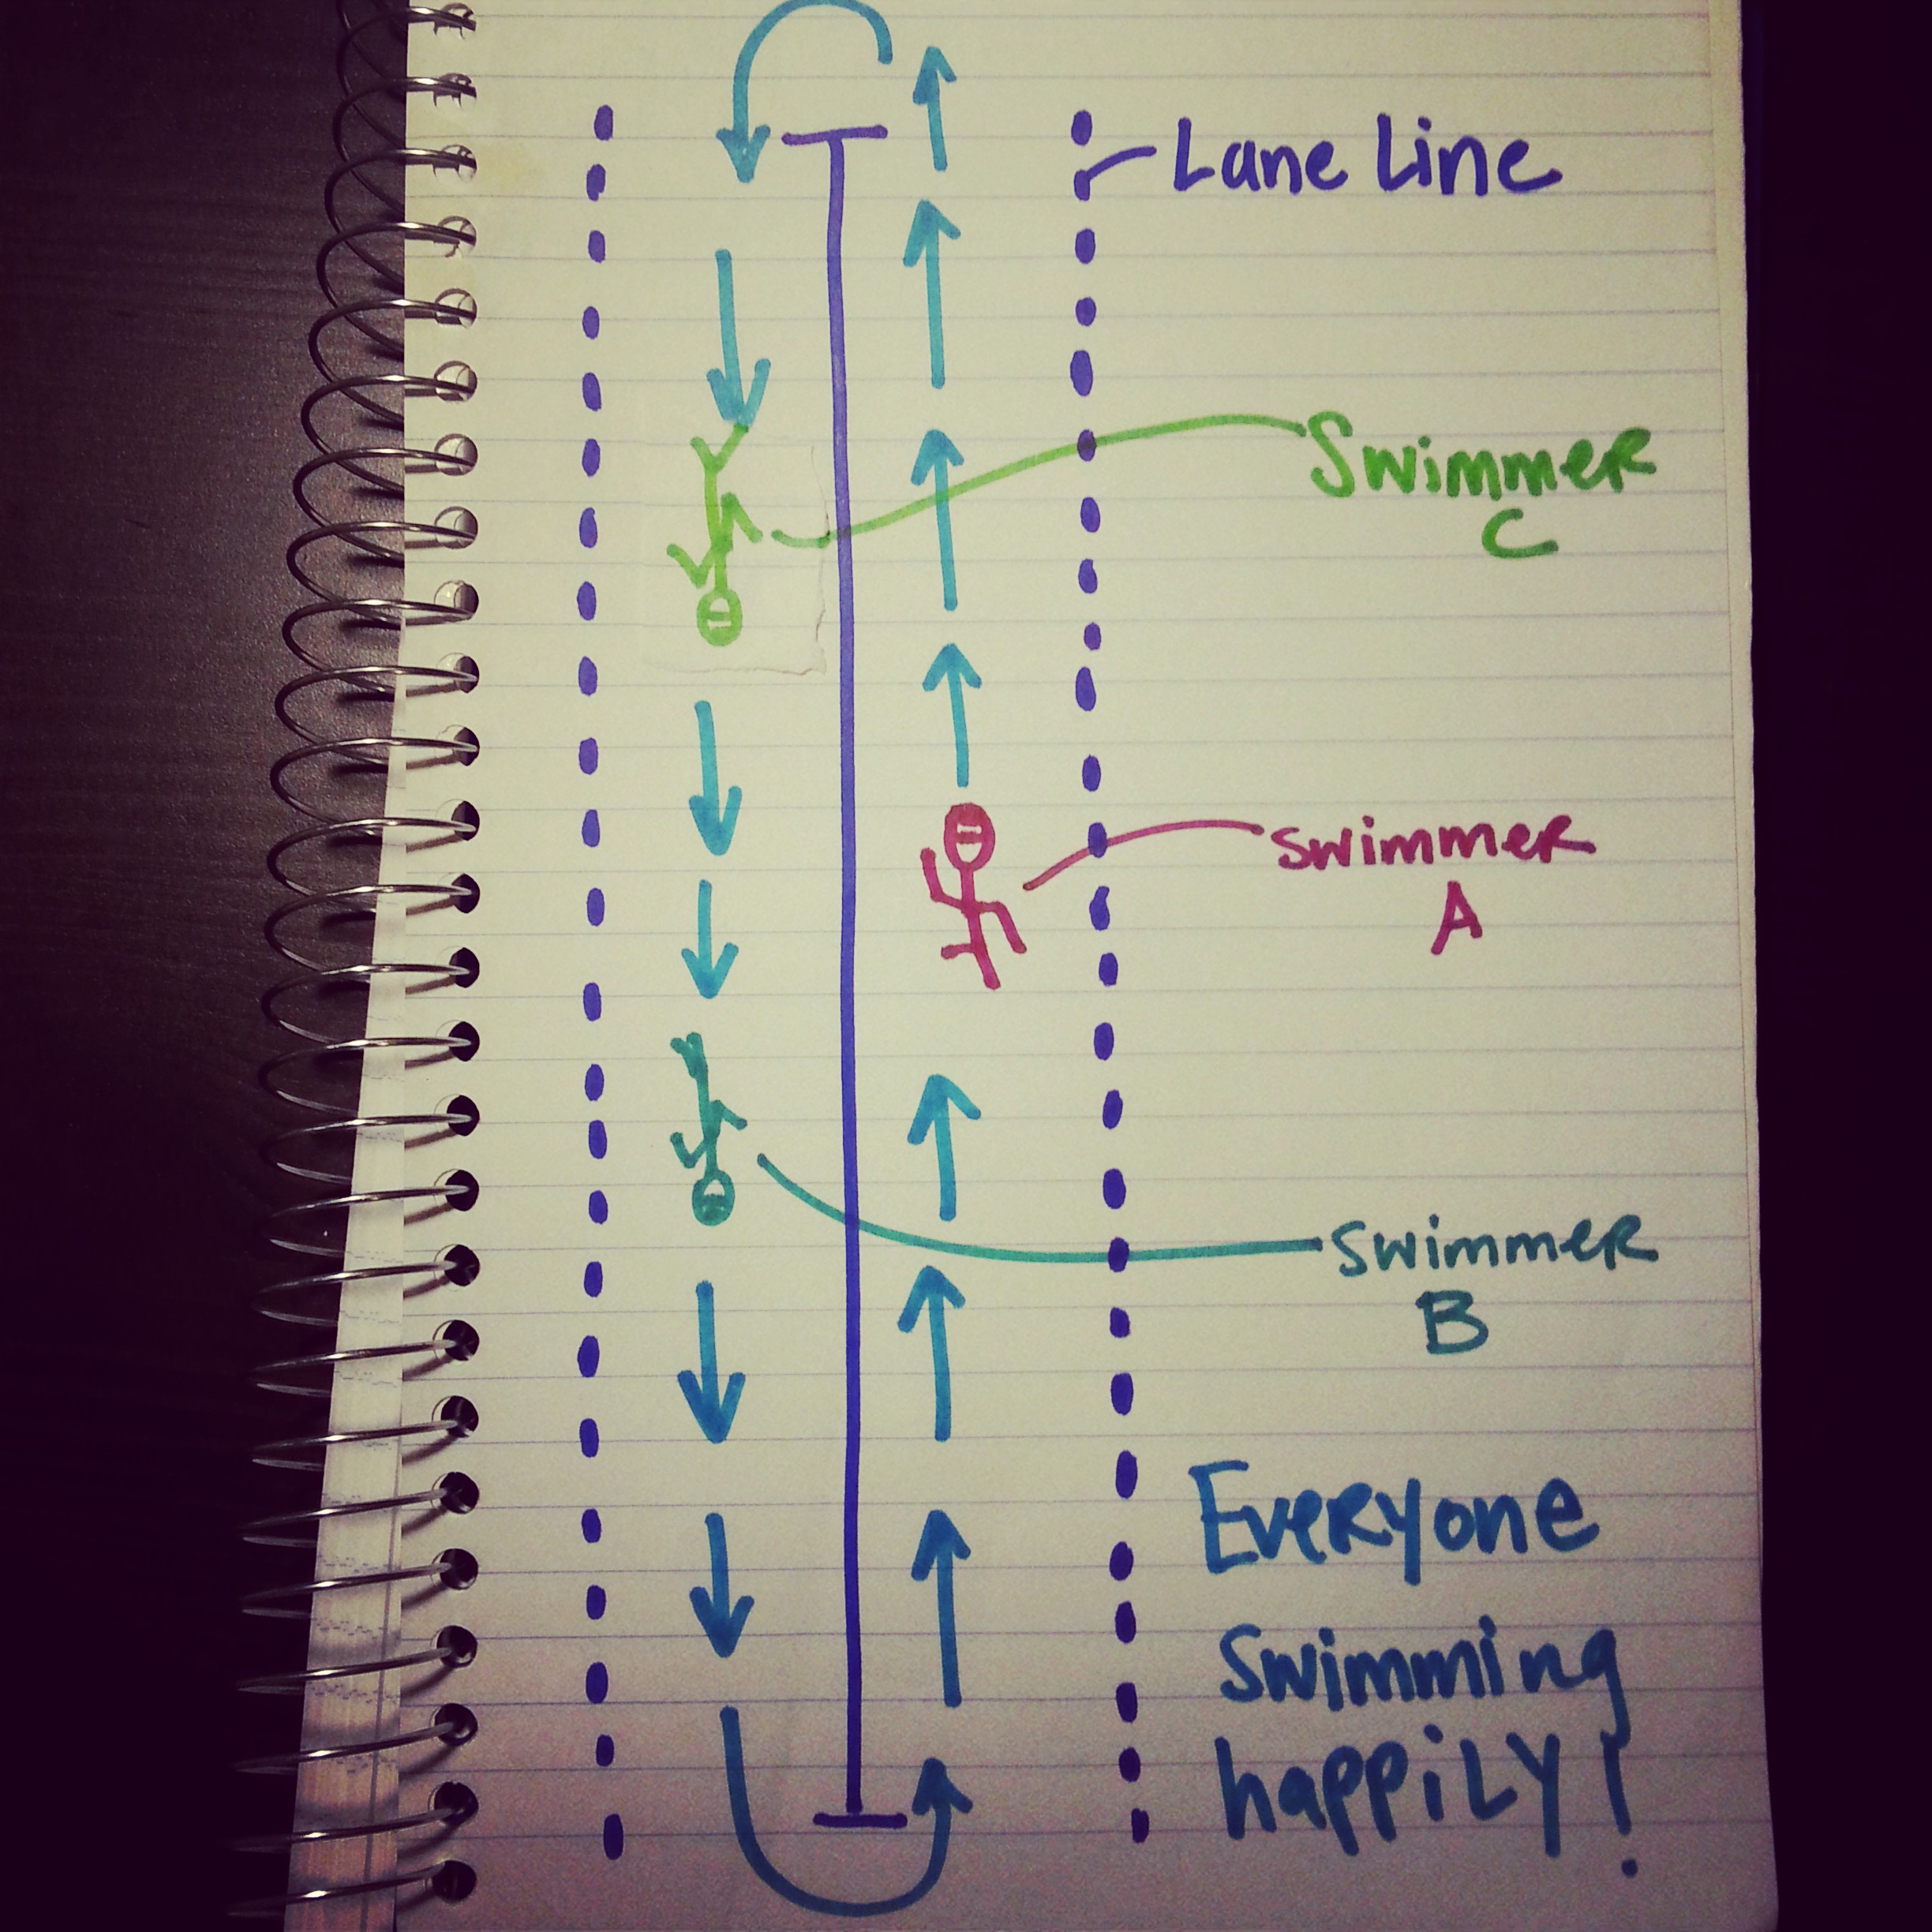 Lane Line
Swimmer
C
Swimmer
A
Swimmer
B
Everyone
Swimming
happily!